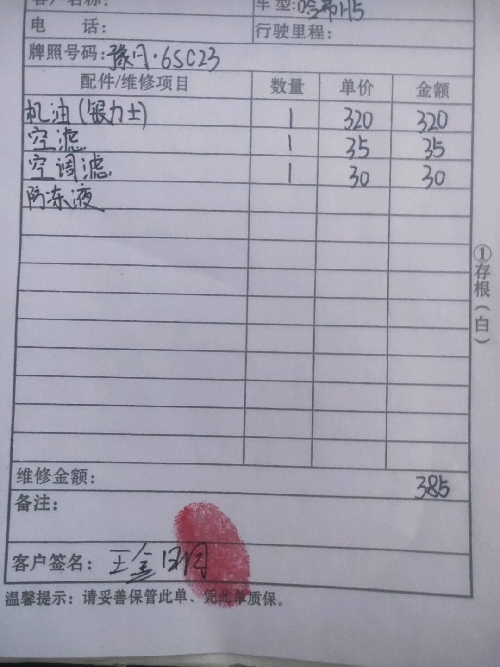 客户名称: 车型:哈弗H5
电 话: 行驶里程:
牌照号码:豫Q·6SC23
配件/维修项目 数量 单价 金额
机油(银力士) 1 320 320
空滤 1 35 35
空调滤 1 30 30
防冻液
①存根(白)
维修金额: 385
备注:
客户签名: 王金
温馨提示:请妥善保管此单、凭此单质保。